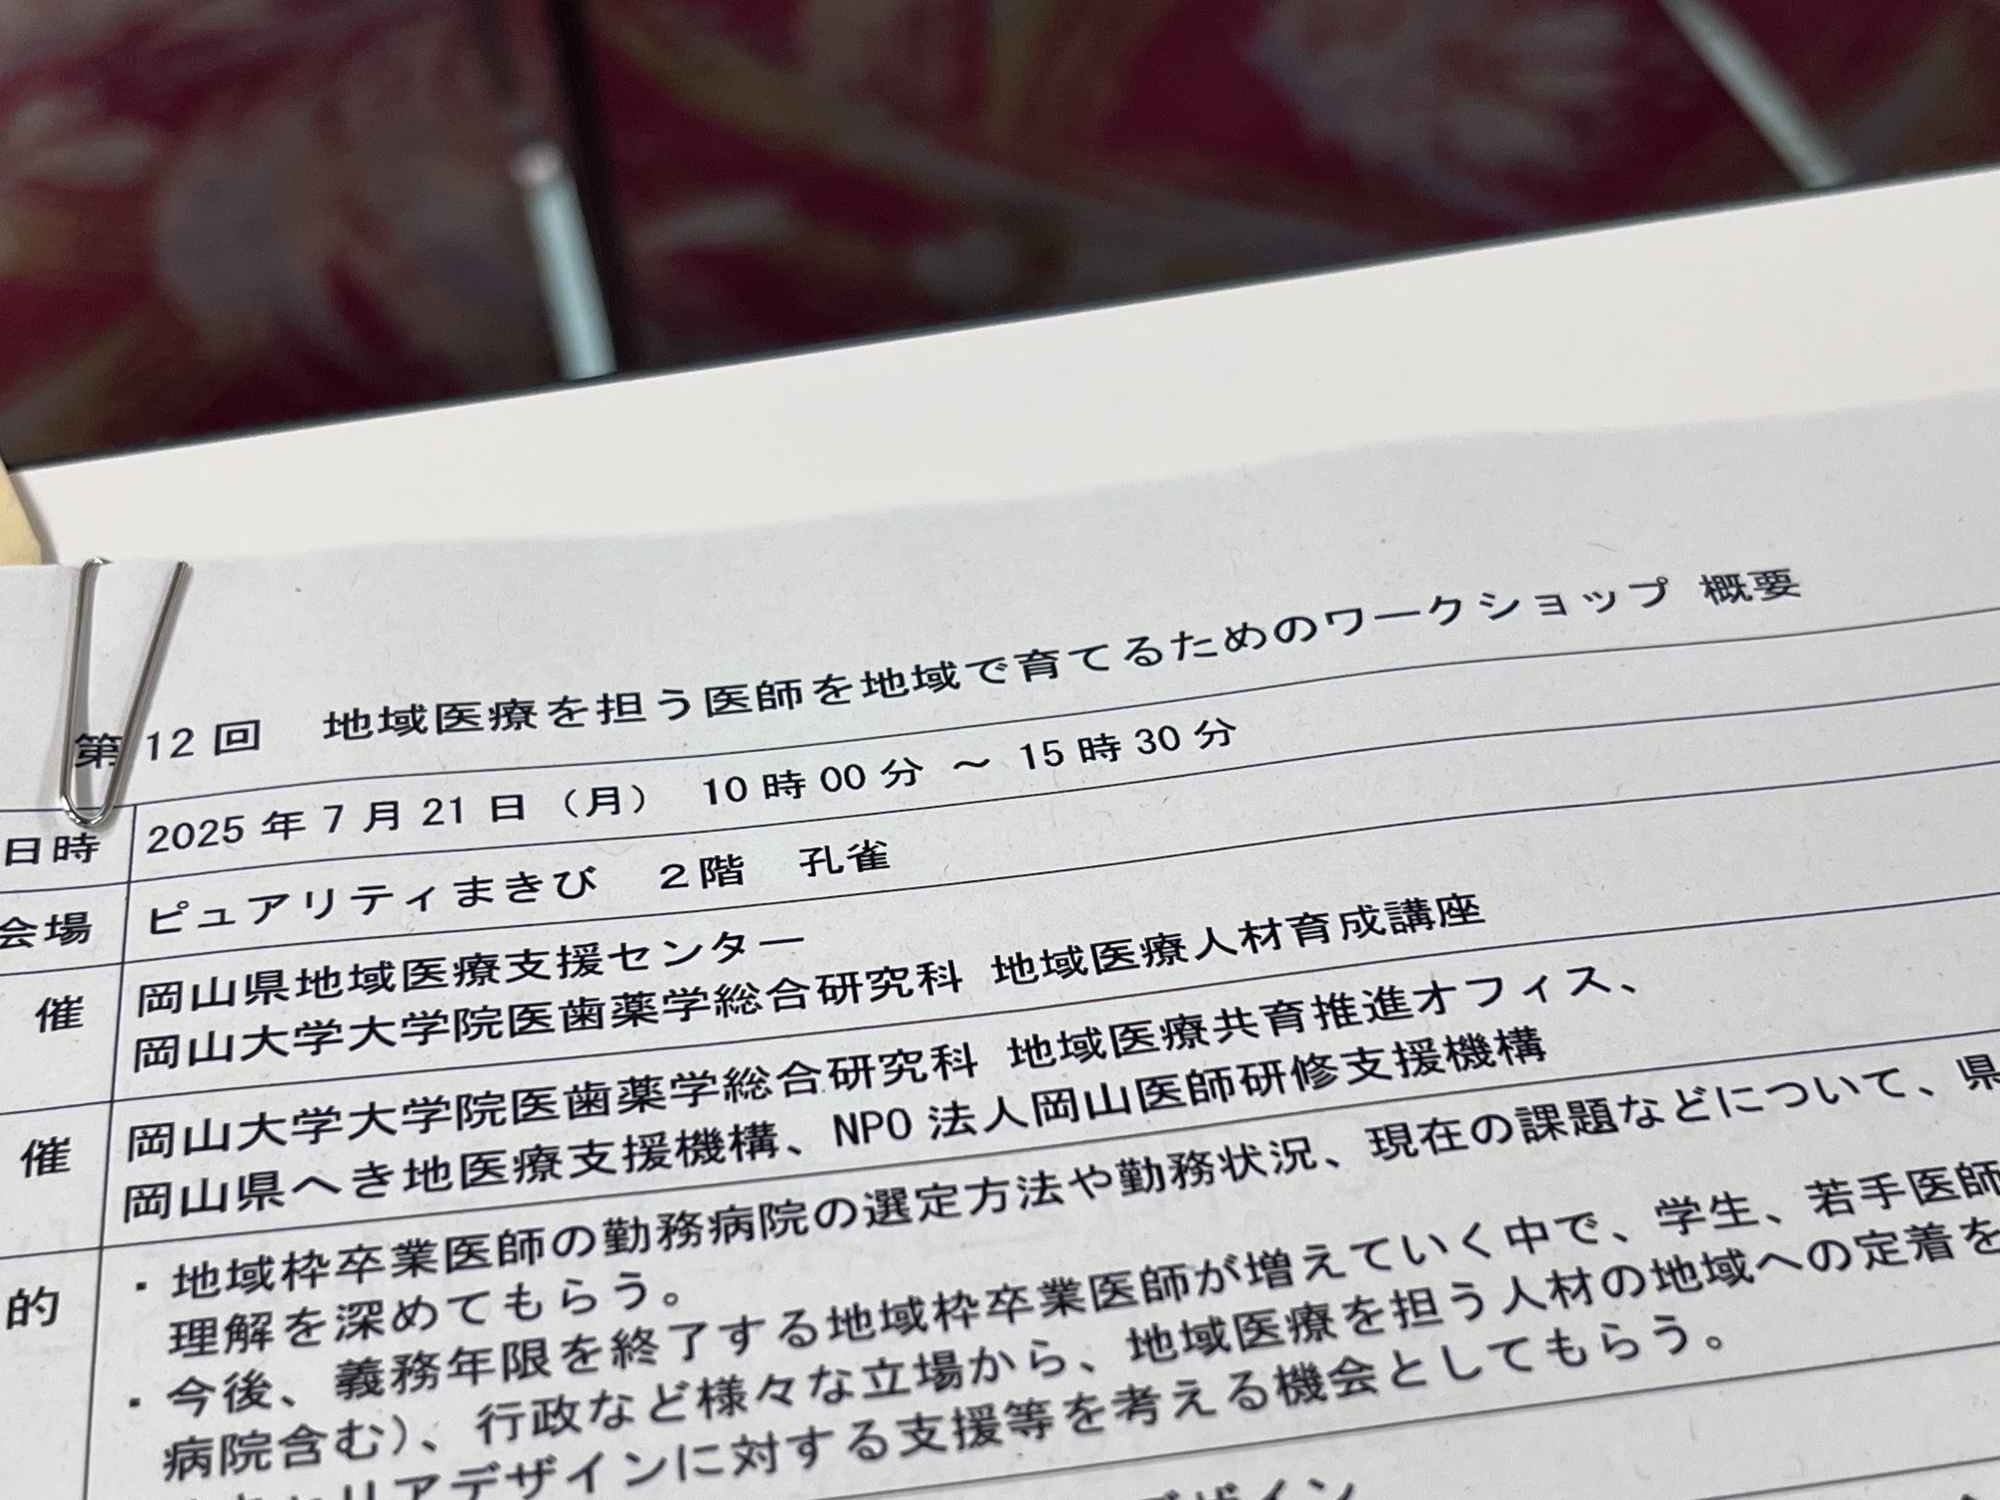 第12回 地域医療を担う医師を地域で育てるためのワークショップ 概要
日時 2025年7月21日（月） 10時00分 ～ 15時30分
会場 ピュアリティまきび 2階 孔雀
催 岡山県地域医療支援センター
岡山大学大学院医歯薬学総合研究科 地域医療人材育成講座
催 岡山大学大学院医歯薬学総合研究科 地域医療共育推進オフィス、
岡山県へき地医療支援機構、NPO法人岡山医師研修支援機構
的 ・地域枠卒業医師の勤務病院の選定方法や勤務状況、現在の課題などについて、県
理解を深めてもらう。
・今後、義務年限を終了する地域枠卒業医師が増えていく中で、学生、若手医師
病院含む）、行政など様々な立場から、地域医療を担う人材の地域への定着を
キャリアデザインに対する支援等を考える機会としてもらう。
デザイン